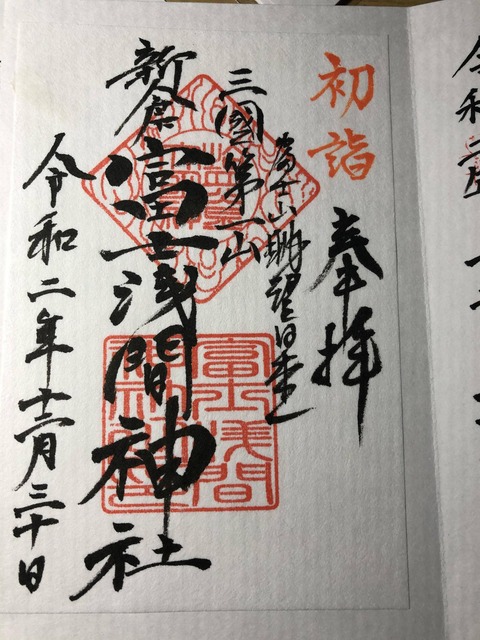 初詣
奉拝
富士山眺望日本一
三國第一山
新倉富士浅間神社
令和二年十二月三十日
富士浅間